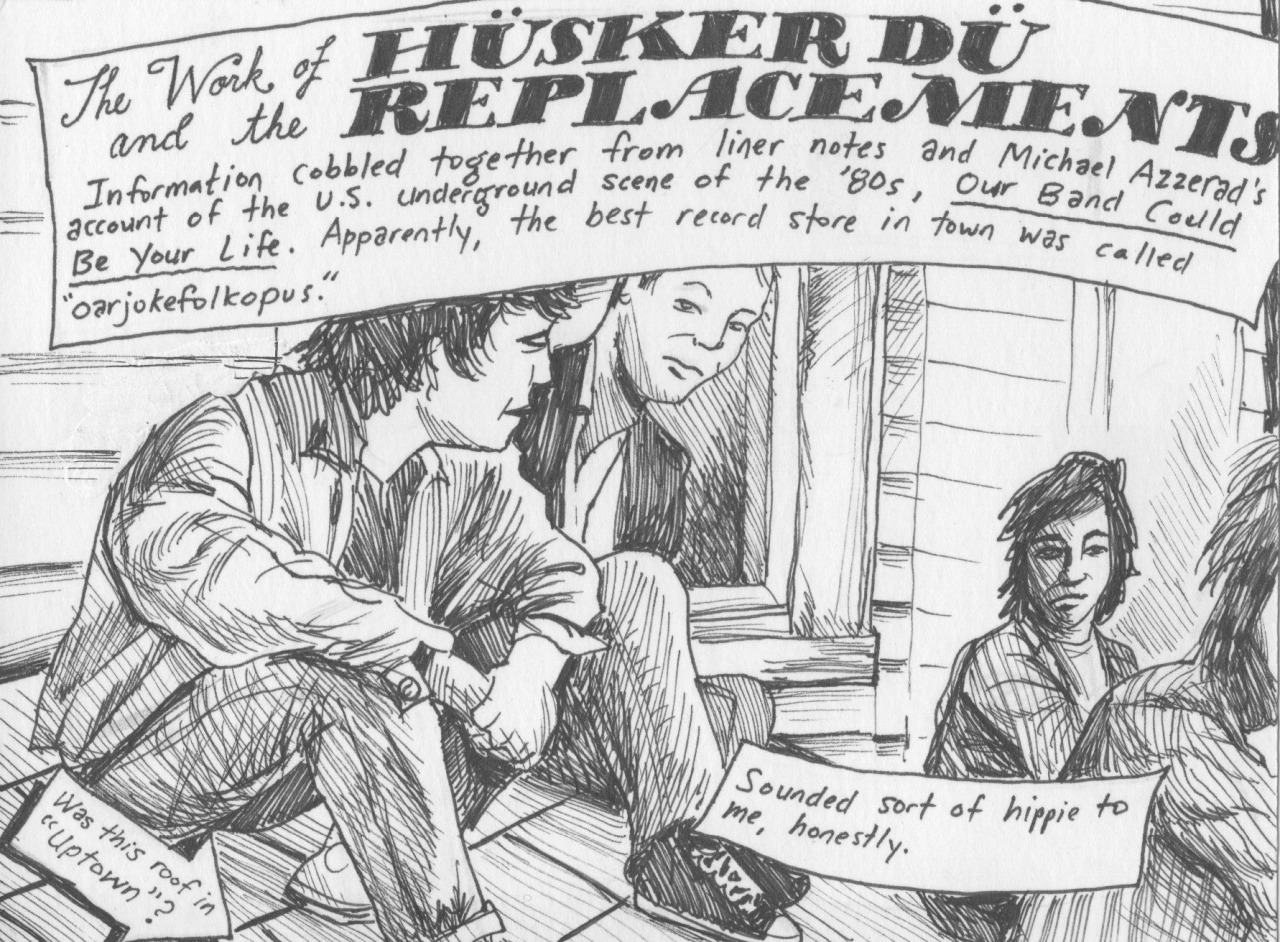 The Work of HÜSKER DÜ
and the REPLACEMENTS
Information cobbled together from liner notes and Michael Azzerad's
account of the U.S. underground scene of the '80s, Our Band Could
Be Your Life. Apparently, the best record store in town was called
"oarjokefolkopus."
Sounded sort of hippie to
me, honestly.
Was this roof in
"Uptown"?